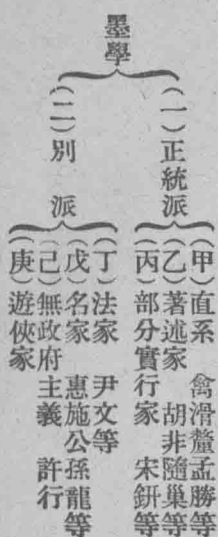 墨學
(一)正統派
(甲)直系　禽滑釐孟勝等
(乙)著述家　胡非隨巢等
(丙)部分實行家　宋鈃等
(二)別派
(丁)法家　尹文等
(戊)名家　惠施公孫龍等
(己)無政府主義　許行
(庚)遊俠家